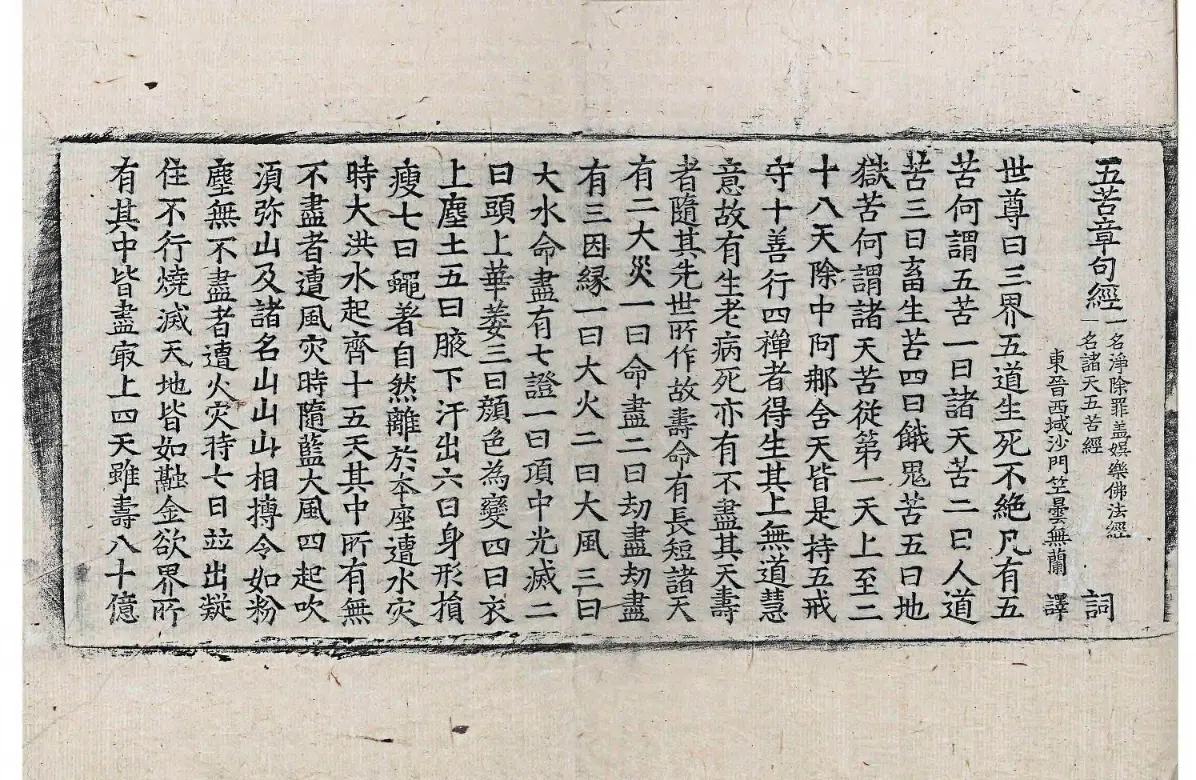 五苦章句經 一名淨除罪盖娯樂佛法經
一名諸天五苦經 詞
東晉西域沙門竺曇無蘭 譯
世尊曰三界五道生死不絶凡有五
苦何謂五苦一曰諸天苦二曰人道
苦三曰畜生苦四曰餓鬼苦五曰地
獄苦何謂諸天苦從第一天上至二
十八天除中阿那含天皆是持五戒
守十善行四禪者得生其上無道慧
意故有生老病死亦有不盡其天壽
者隨其先世所作故壽命有長短諸天
有二大災一曰命盡二曰劫盡劫盡
有三因縁一曰大火二曰大風三曰
大水命盡有七證一曰項中光滅二
曰頭上華萎三曰顔色為變四曰衣
上塵土五曰腋下汗出六曰身形損
瘦七曰蠅著自然離於夲座遭水灾
時大洪水起齊十五天其中所有無
不盡者遭風灾時隨藍大風四起吹
須弥山及諸名山山山相搏令如粉
塵無不盡者遭火灾時七日竝出凝
住不行燒滅天地皆如融金欲界所
有其中皆盡冣上四天雖壽八十億